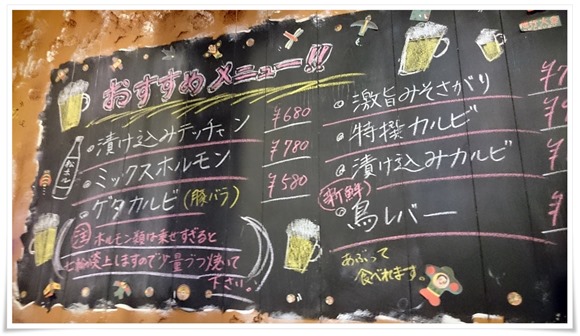 おすすめメニュー!!
漬け込みテッチャン ¥680
ミックスホルモン ¥780
ゲタカルビ(豚バラ) ¥580
注 ホルモン類は乗せすぎると
七輪が炎上しますので少量づつ焼いて
下さい。
激旨みそさがり ¥7
特撰カルビ ¥7
漬け込みカルビ ¥
新鮮
鳥レバー ¥
あぶって
食べれます。